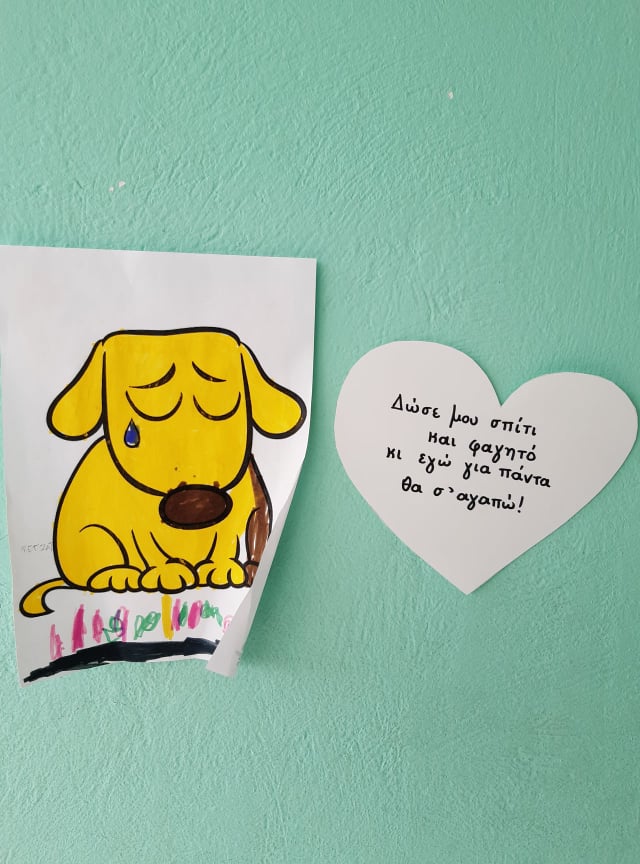 Δώσε μου σπίτι
και φαγητό
κι εγώ για πάντα
θα σ'αγαπώ!